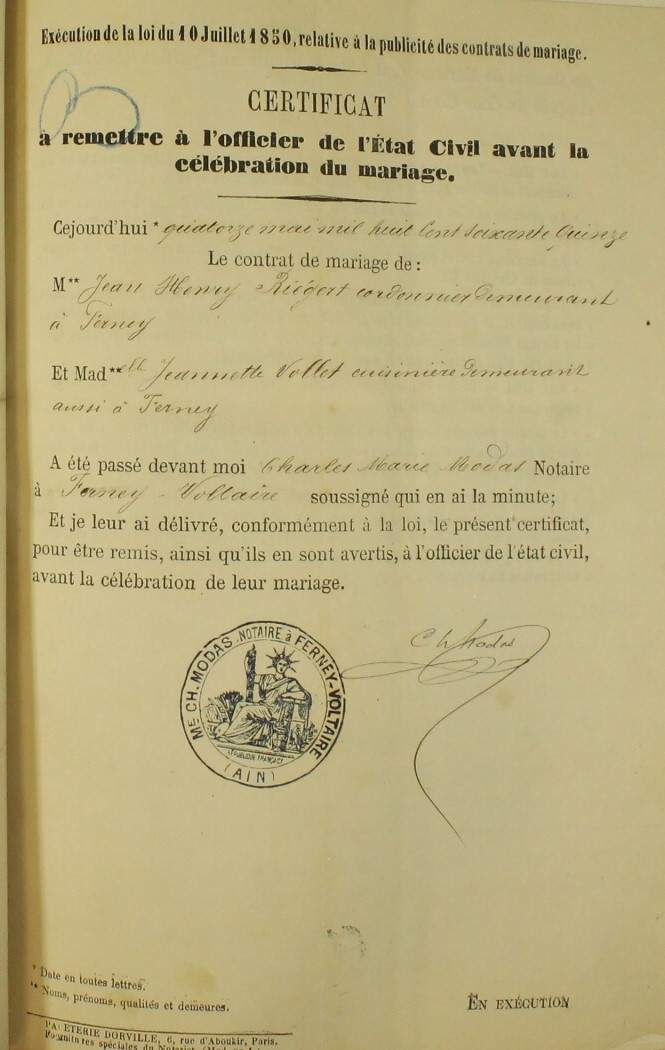 Exécution de la loi du 10 Juillet 1850, relative à la publicité des contrats de mariage.
CERTIFICAT
à remettre à l'officier de l'État Civil avant la
célébration du mariage.
Cejourd'hui * quatorze mai mil huit Cent soixante Quinze
Le contrat de mariage de :
M** Jean Henry Riégert cordonnier Demeurant
à Ferney
Et Mad**ell Jeannette Vollet cuisinière Demeurant
aussi à Ferney
A été passé devant moi Charles Marie Modas Notaire
à Ferney-Voltaire soussigné qui en ai la minute;
Et je leur ai délivré, conformément à la loi, le présent certificat,
pour être remis, ainsi qu'ils en sont avertis, à l'officier de l'état civil,
avant la célébration de leur mariage.
Ch Modas
Me CH. MODAS, NOTAIRE à FERNEY-VOLTAIRE
(AIN)
* Date en toutes lettres.
** Noms, prénoms, qualités et demeures.
EN EXÉCUTION
PAPETERIE DORVILLE, 6, rue d'Aboukir, Paris.
Fournitures spéciales du Notariat